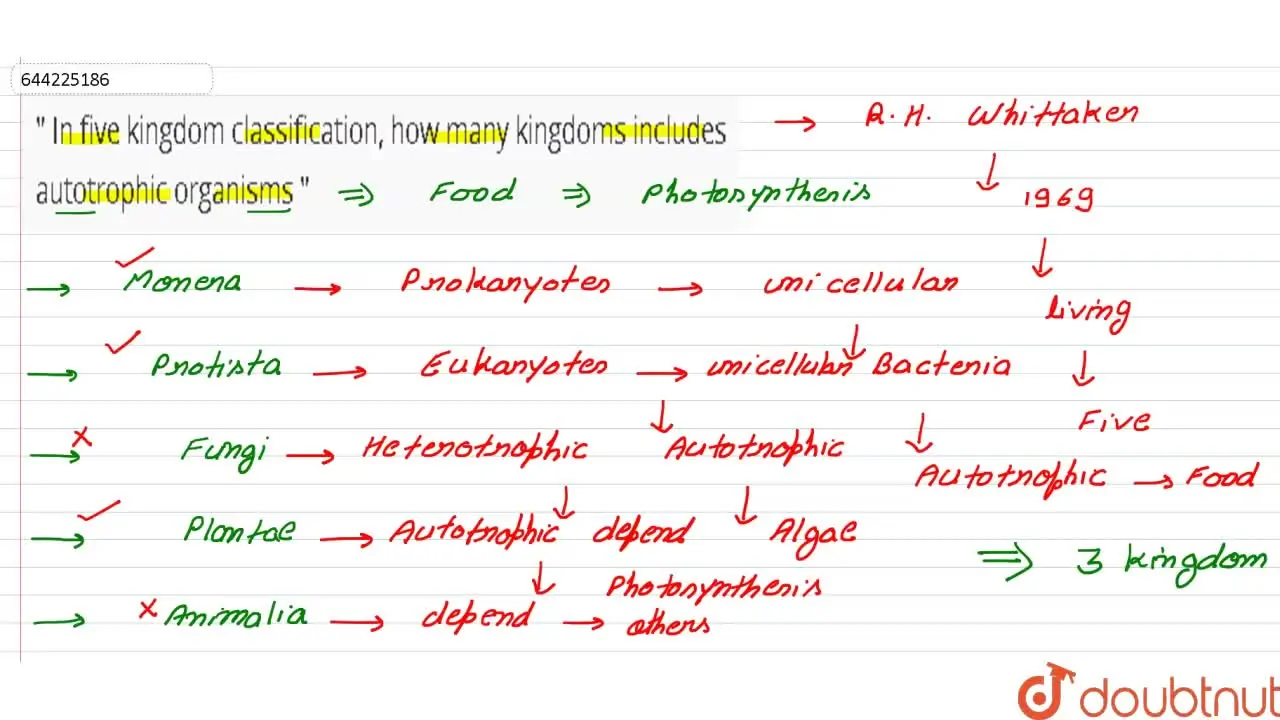 644225186
" In five kingdom classification, how many kingdoms includes
autotrophic organisms "
→ R.H. Whittaker
⇒ Food ⇒ Photosynthenis
↓ 1969
↓
living
→ ✓ Monera → Prokaryotes → unicellular
↓
→ ✓ Protista → Eukaryotes → unicellular Bacteria
↓
Five
→ x Fungi → Heterotrophic ↓ Autotrophic ↓
Autotrophic → Food
→ ✓ Plantae → Autotrophic ↓ depend ↓ Algae
⇒ 3 kingdom
↓ Photosynthenis
→ x Animalia → depend → others
doubtnut